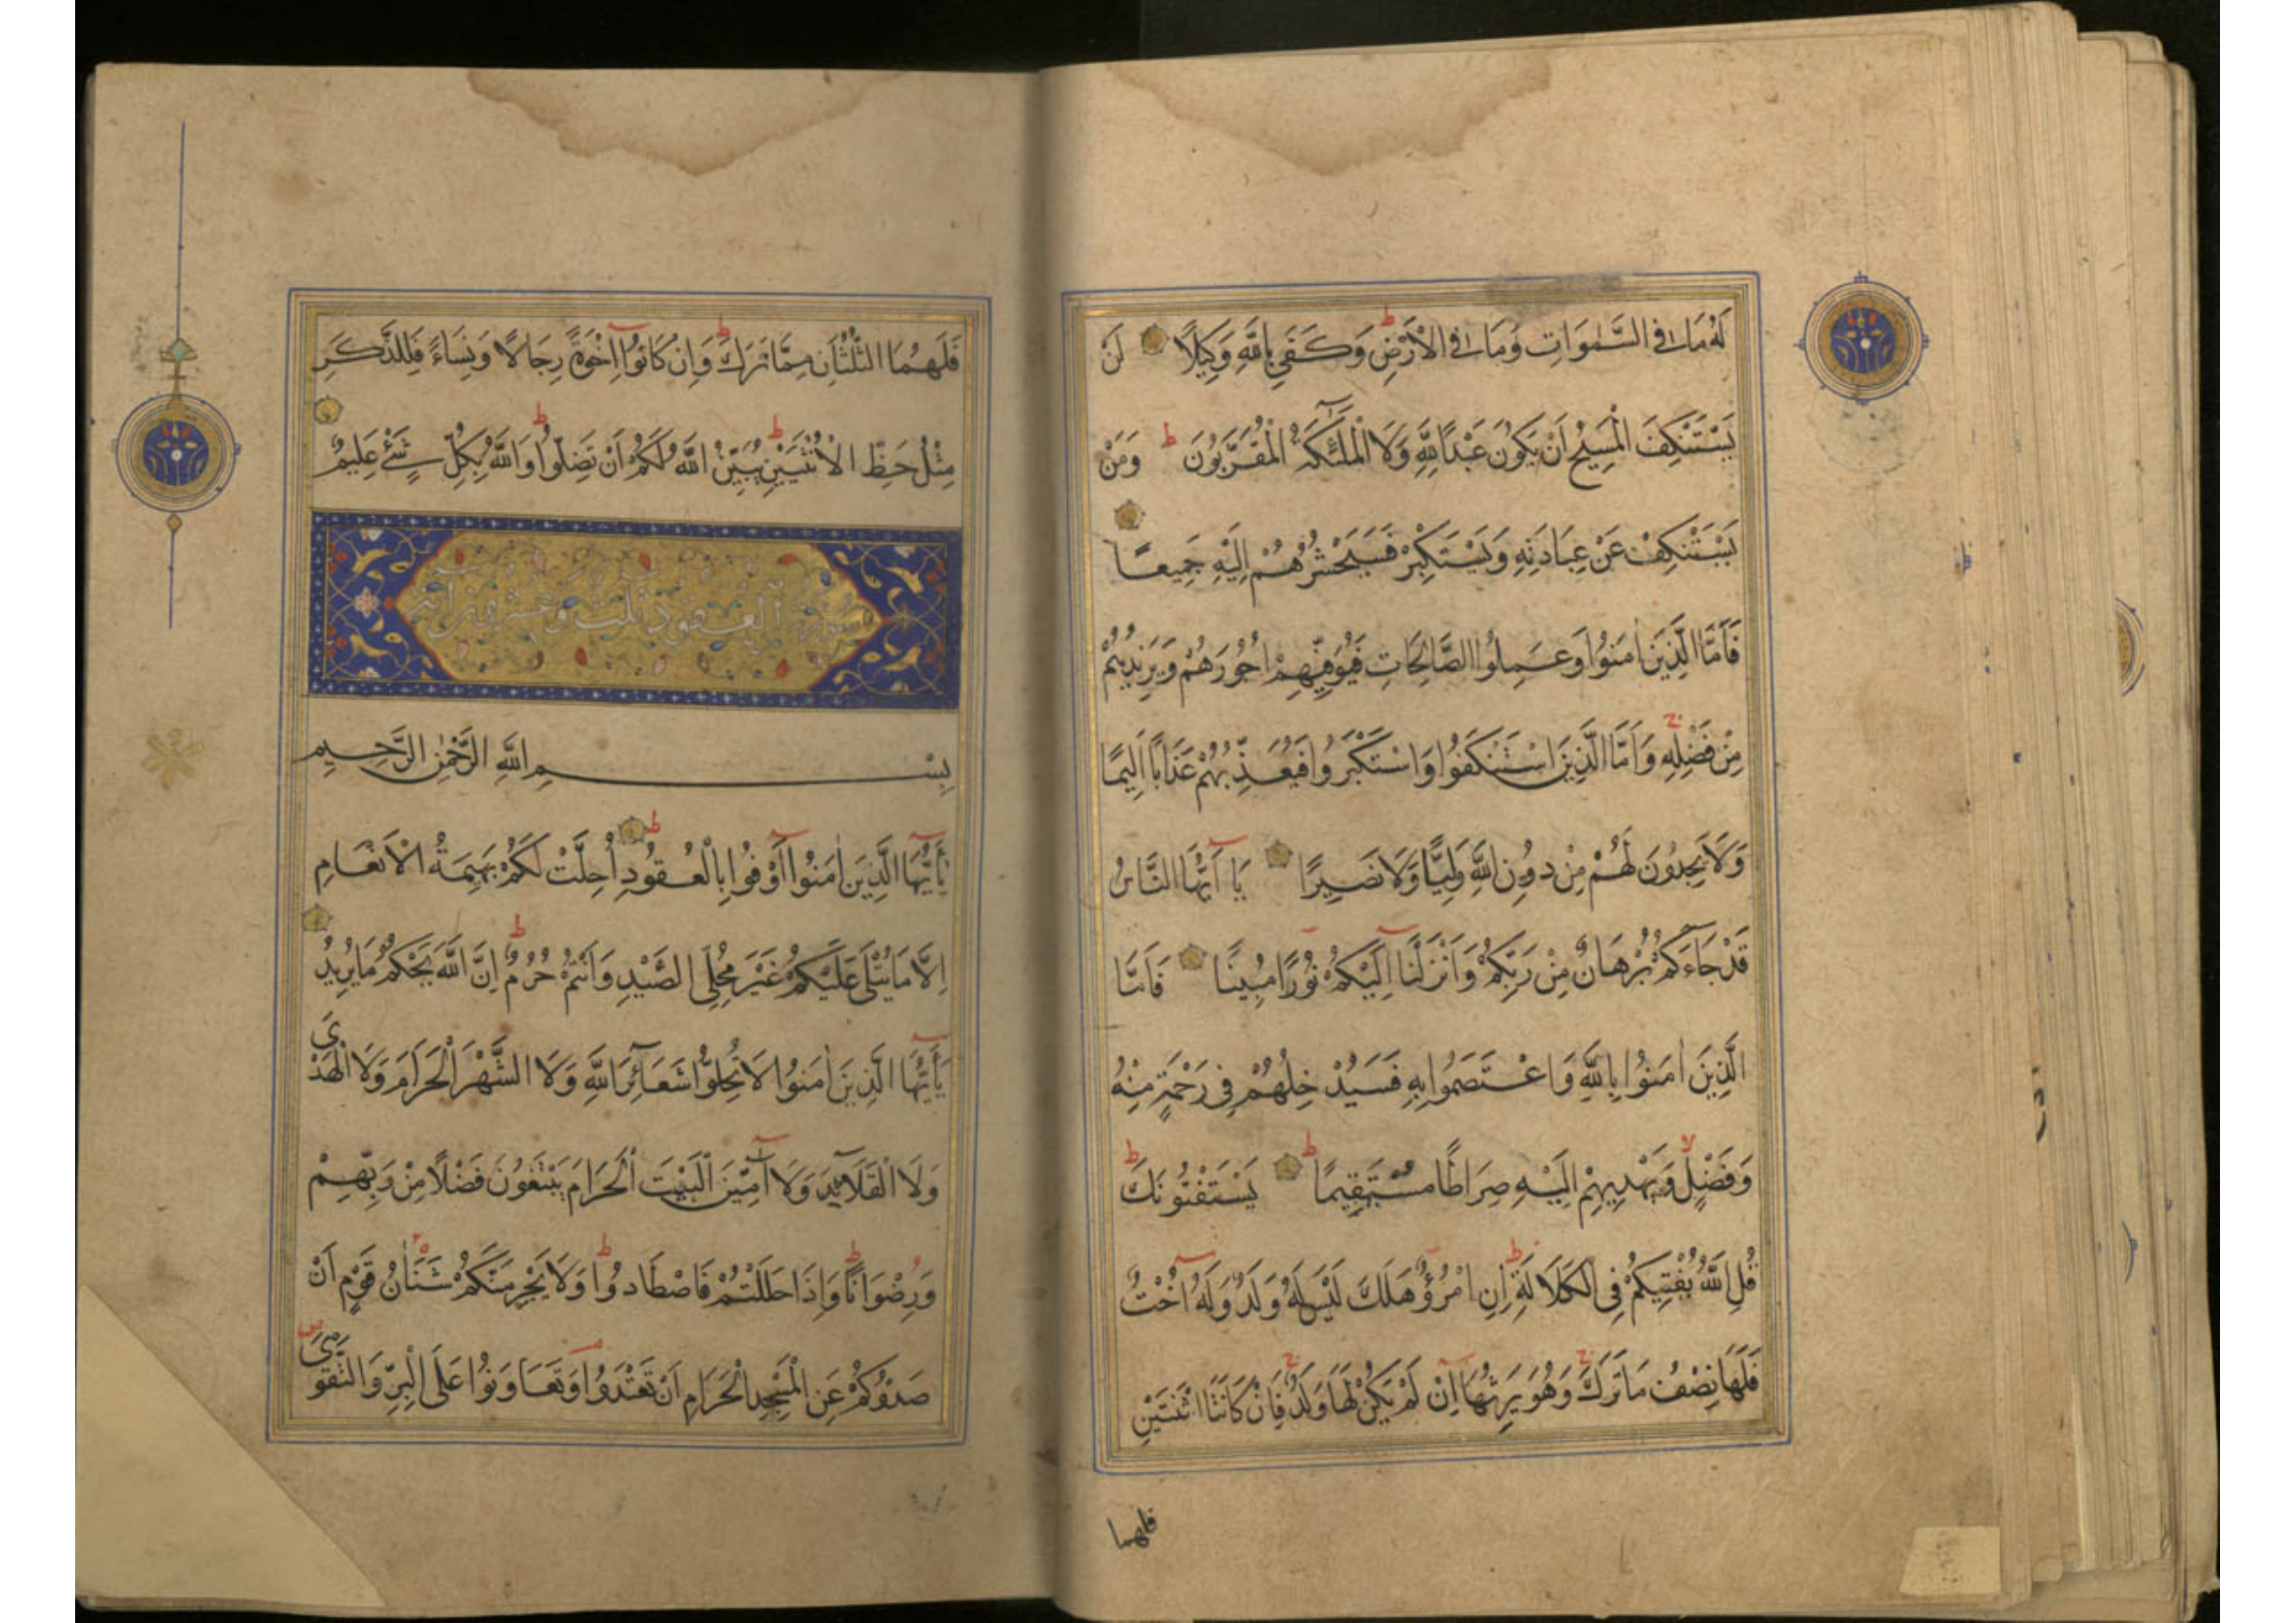 لَهُ مَا فِي السَّمٰوَاتِ وَمَا فِي الْاَرْضِ وَكَفَى بِاللَّهِ وَكِيلًا لَنْ
يَسْتَنْكِفَ الْمَسِيحُ اَنْ يَكُونَ عَبْدًا لِلَّهِ وَلَا الْمَلٰٓئِكَةُ الْمُقَرَّبُونَ وَمَنْ
يَسْتَنْكِفْ عَنْ عِبَادَتِهِ وَيَسْتَكْبِرْ فَسَيَحْشُرُهُمْ اِلَيْهِ جَمِيعًا
فَاَمَّا الَّذِينَ اٰمَنُوا وَعَمِلُوا الصَّالِحَاتِ فَيُوَفِّيهِمْ اُجُورَهُمْ وَيَزِيدُهُمْ
مِنْ فَضْلِهِ وَاَمَّا الَّذِينَ اسْتَنْكَفُوا وَاسْتَكْبَرُوا فَيُعَذِّبُهُمْ عَذَابًا اَلِيمًا
وَلَا يَجِدُونَ لَهُمْ مِنْ دُونِ اللَّهِ وَلِيًّا وَلَا نَصِيرًا يَا اَيُّهَا النَّاسُ
قَدْ جَاءَكُمْ بُرْهَانٌ مِنْ رَبِّكُمْ وَاَنْزَلْنَا اِلَيْكُمْ نُورًا مُبِينًا فَاَمَّا
الَّذِينَ اٰمَنُوا بِاللَّهِ وَاعْتَصَمُوا بِهِ فَسَيُدْخِلُهُمْ فِي رَحْمَةٍ مِنْهُ
وَفَضْلٍ وَيَهْدِيهِمْ اِلَيْهِ صِرَاطًا مُسْتَقِيمًا يَسْتَفْتُونَكَ
قُلِ اللَّهُ يُفْتِيكُمْ فِي الْكَلَالَةِ اِنِ امْرُؤٌ هَلَكَ لَيْسَ لَهُ وَلَدٌ وَلَهُ اُخْتٌ
فَلَهَا نِصْفُ مَا تَرَكَ وَهُوَ يَرِثُهَا اِنْ لَمْ يَكُنْ لَهَا وَلَدٌ فَاِنْ كَانَتَا اثْنَتَيْنِ
فلهما
فَلَهُمَا الثُّلُثَانِ مِمَّا تَرَكَ وَاِنْ كَانُوا اِخْوَةً رِجَالًا وَنِسَاءً فَلِلذَّكَرِ
مِثْلُ حَظِّ الْاُنْثَيَيْنِ يُبَيِّنُ اللَّهُ لَكُمْ اَنْ تَضِلُّوا وَاللَّهُ بِكُلِّ شَيْءٍ عَلِيمٌ
سورة العقود ثلث وعشرون اية
بِسْمِ اللَّهِ الرَّحْمٰنِ الرَّحِيمِ
يَاَيُّهَا الَّذِينَ اٰمَنُوا اَوْفُوا بِالْعُقُودِ اُحِلَّتْ لَكُمْ بَهِيمَةُ الْاَنْعَامِ
اِلَّا مَا يُتْلَى عَلَيْكُمْ غَيْرَ مُحِلِّي الصَّيْدِ وَاَنْتُمْ حُرُمٌ اِنَّ اللَّهَ يَحْكُمُ مَا يُرِيدُ
يَاَيُّهَا الَّذِينَ اٰمَنُوا لَا تُحِلُّوا شَعَائِرَ اللَّهِ وَلَا الشَّهْرَ الْحَرَامَ وَلَا الْهَدْيَ
وَلَا الْقَلَائِدَ وَلَا آمِّينَ الْبَيْتَ الْحَرَامَ يَبْتَغُونَ فَضْلًا مِنْ رَبِّهِمْ
وَرِضْوَانًا وَاِذَا حَلَلْتُمْ فَاصْطَادُوا وَلَا يَجْرِمَنَّكُمْ شَنَاٰنُ قَوْمٍ اَنْ
صَدُّوكُمْ عَنِ الْمَسْجِدِ الْحَرَامِ اَنْ تَعْتَدُوا وَتَعَاوَنُوا عَلَى الْبِرِّ وَالتَّقْوَى